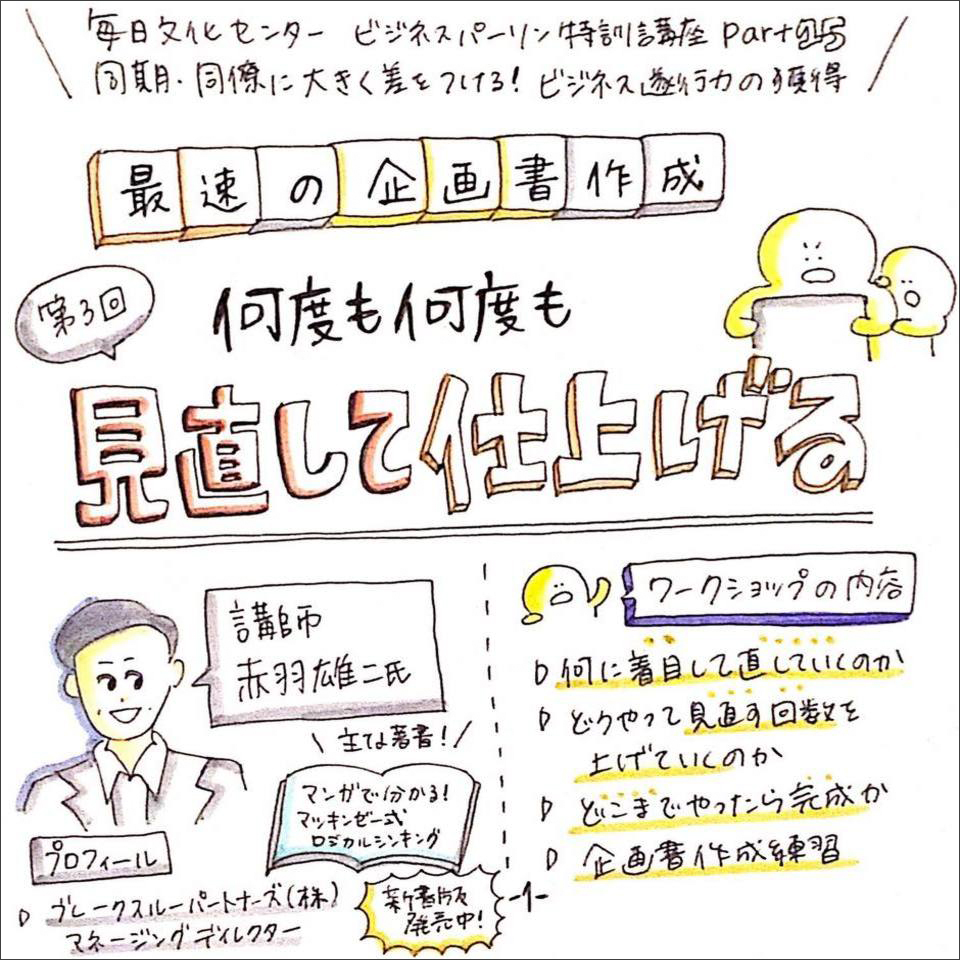 毎日文化センター ビジネスパーソン特訓講座 Part
同期・同僚に大きく差をつける！ビジネス遂行力の獲得
最速の企画書作成
第3回
何度も何度も
見直して仕上げる
講師
赤羽雄二氏
主な著書！
マンガで分かる！
マッキンゼー式
ロジカルシンキング
新書版
発売中！
プロフィール
ブレークスルーパートナーズ(株)
マネージングディレクター
ワークショップの内容
何に着目して直していくのか
どうやって見直す回数を
上げていくのか
どこまでやったら完成か
企画書作成練習
-1-